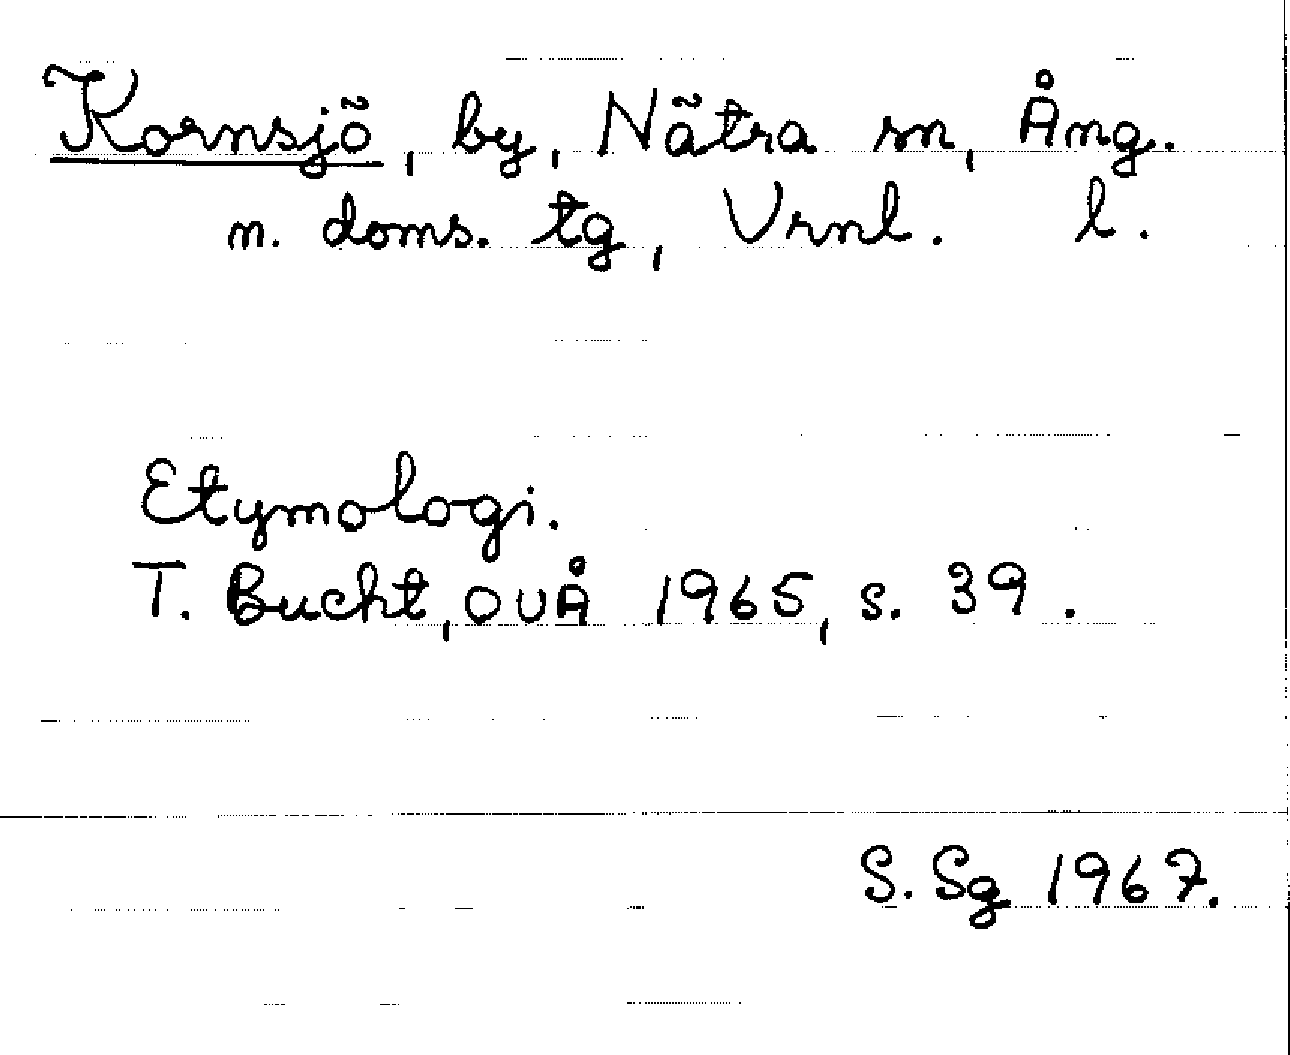 Kornsjö, by, Nätra sn, Ång.
n. doms. tg, Vrnl. l.
Etymologi.
T. Bucht, OUÅ 1965, s. 39.
S. Sg 1967.